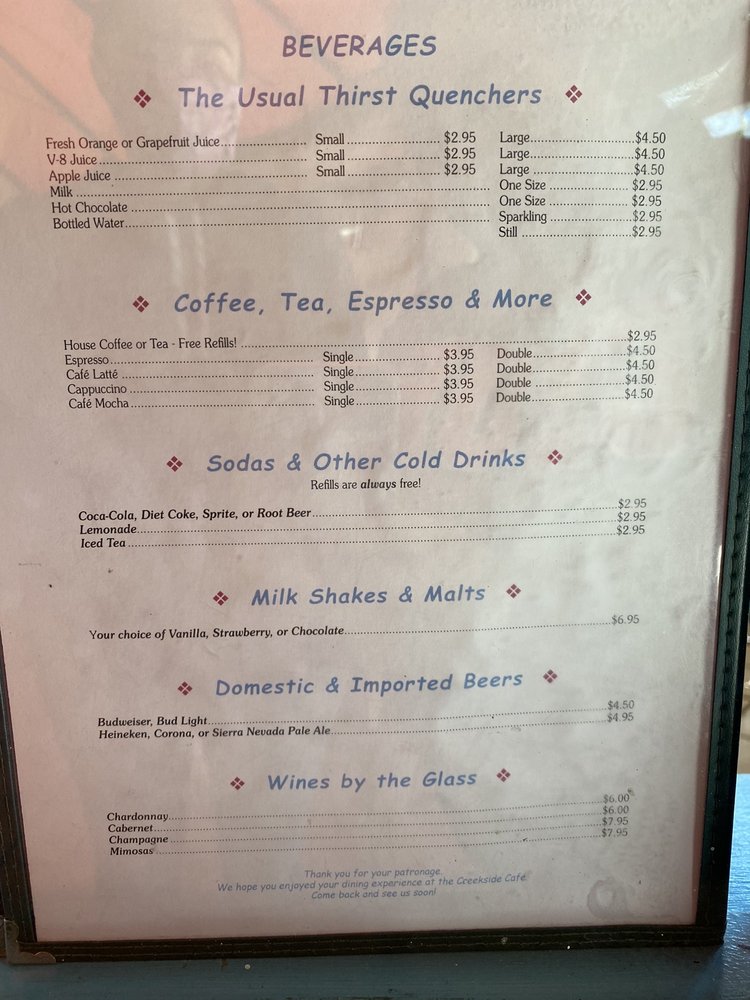 BEVERAGES
❖ The Usual Thirst Quenchers ❖
Fresh Orange or Grapefruit Juice..................... Small ........................ $2.95 Large..........................$4.50
V-8 Juice.................................................... Small ........................ $2.95 Large..........................$4.50
Apple Juice ................................................ Small ........................ $2.95 Large .........................$4.50
Milk ........................................................ One Size .................... $2.95
Hot Chocolate ............................................ One Size .................... $2.95
Bottled Water............................................. Sparkling ....................$2.95
Still ...........................$2.95
❖ Coffee, Tea, Espresso & More ❖
House Coffee or Tea - Free Refills! ........................................................$2.95
Espresso.................................................... Single........................ $3.95 Double........................$4.50
Café Latté ................................................. Single........................ $3.95 Double........................$4.50
Cappuccino ............................................... Single........................ $3.95 Double .......................$4.50
Café Mocha............................................... Single........................ $3.95 Double........................$4.50
❖ Sodas & Other Cold Drinks ❖
Refills are always free!
Coca-Cola, Diet Coke, Sprite, or Root Beer................................................$2.95
Lemonade........................................................................................$2.95
Iced Tea..........................................................................................$2.95
❖ Milk Shakes & Malts ❖
Your choice of Vanilla, Strawberry, or Chocolate..........................................$6.95
❖ Domestic & Imported Beers ❖
Budweiser, Bud Light..........................................................................$4.50
Heineken, Corona, or Sierra Nevada Pale Ale...............................................$4.95
❖ Wines by the Glass ❖
Chardonnay......................................................................................$6.00
Cabernet..........................................................................................$6.00
Champagne ......................................................................................$7.95
Mimosas ..........................................................................................$7.95
Thank you for your patronage.
We hope you enjoyed your dining experience at the Creekside Cafe.
Come back and see us soon!